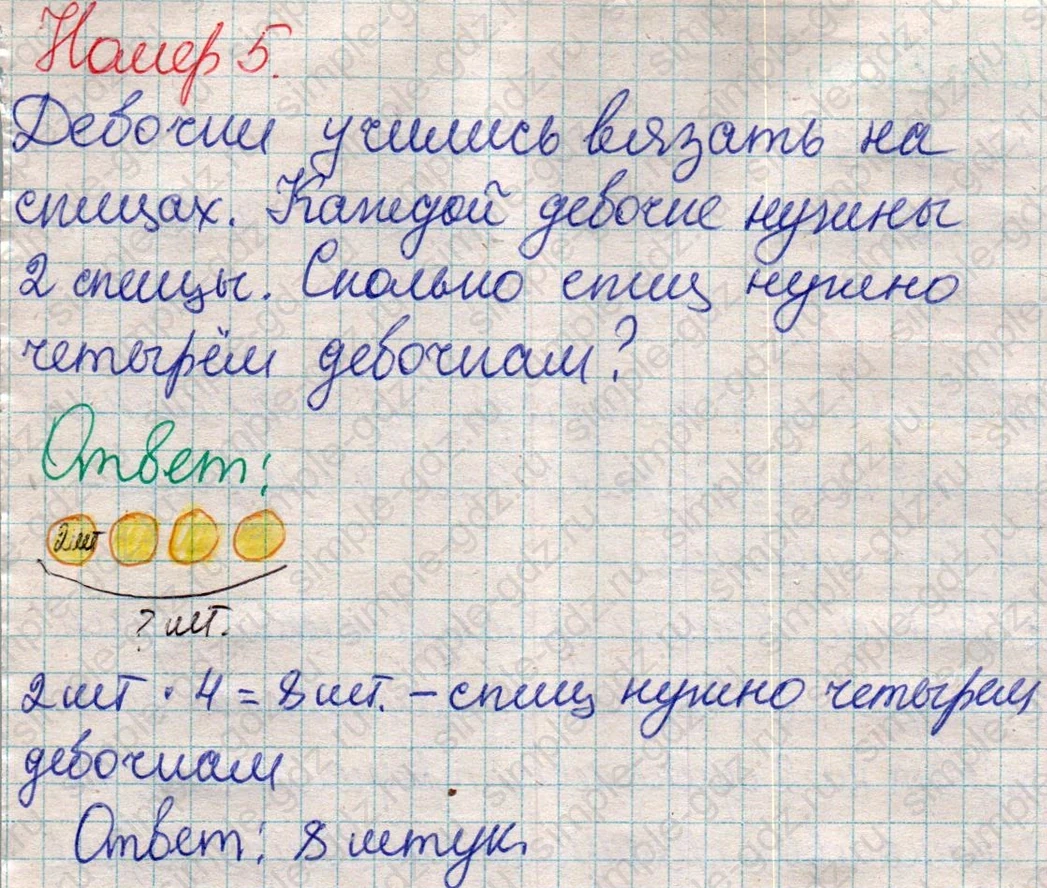 Номер 5.
Девочки учились вязать на
спицах. Каждой девочке нужны
2 спицы. Сколько спиц нужно
четырём девочкам?
Ответ:
2шт
? шт.
2шт · 4 = 8шт. – спиц нужно четырем
девочкам
Ответ: 8 штук.
simple-gdz.ru